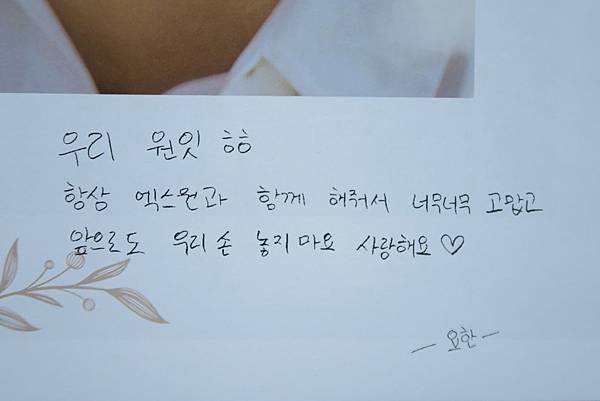 우리 원잇 ㅎㅎ
항상 엑스원과 함께 해줘서 너무너무 고맙고
앞으로도 우리 손 놓지 마요 사랑해요♡
— 요한 —